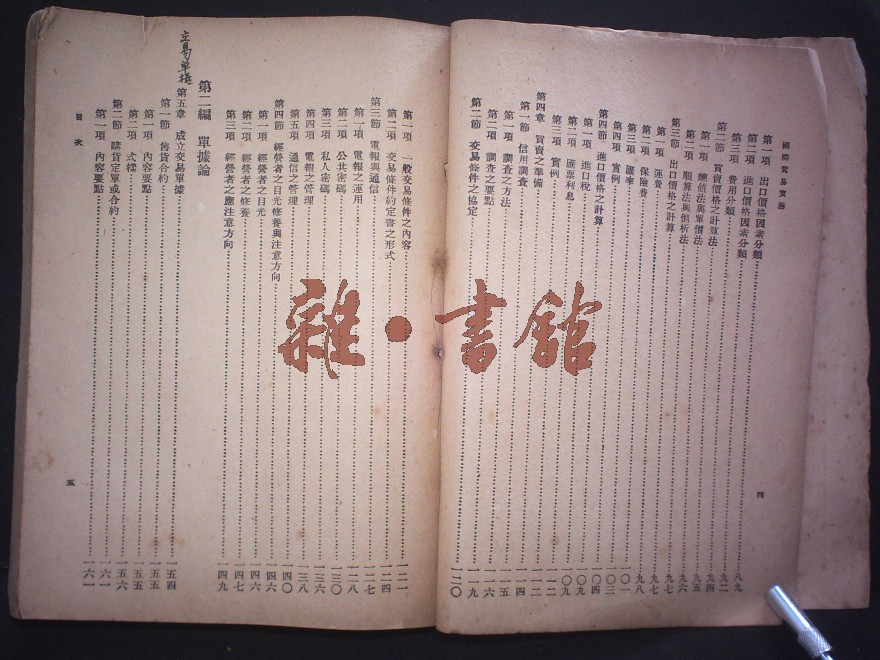 國際貿易實務
第一項 出口價格因素分類……八九
第二項 進口價格因素分類……九二
第三項 費用分類……九四
第二節 買賣價格之計算法……九五
第一項 總値法與單價法……九六
第二項 順算法與倒析法……九七
第三節 出口價格之計算……九七
第一項 運費……九八
第二項 保險費……一〇一
第三項 匯率……一〇三
第四項 實例……一〇四
第四節 進口價格之計算……一〇九
第一項 進口稅……一〇九
第二項 匯票利息……一一二
第三項 實例……一一二
第四章 買賣之準備……一一四
第一節 信用調查……一一五
第一項 調查之方法……一一六
第二項 調查之要點……一一九
第二節 交易條件之協定……一二〇
四
第一項 一般交易條件之內容……一二一
第二項 交易條件約定書之形式……一二四
第三節 電報與通信……一二七
第一項 電報之運用……一二八
第二項 公共密碼……一三〇
第三項 私人密碼……一三六
第四項 電報之管理……一三八
第五項 通信之管理……一四〇
第四節 經營者之目光修養與注意方向……一四六
第一項 經營者之目光……一四六
第二項 經營者之修養……一四七
第三項 經營者之應注意方向……一四九
第二編 單據論
第五章 成立交易單據……一五四
第一節 售貨合約……一五五
第一項 內容要點……一五五
第二項 式樣……一五六
第二節 購貨定單或合約……一六一
第一項 內容要點……一六一
目次
五
雜·書館